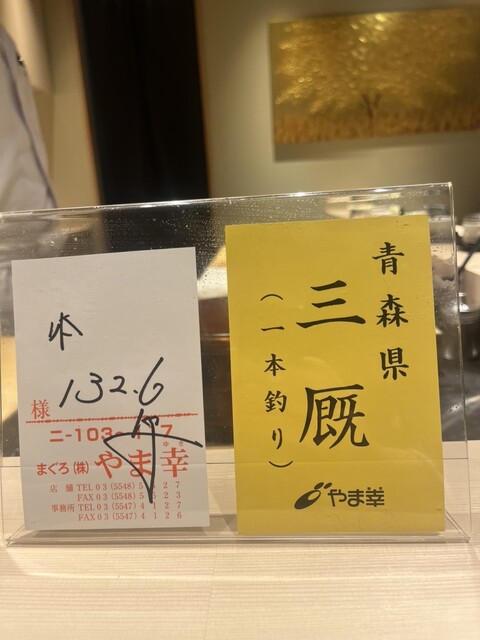 132.6
様
まぐろ(株)やま幸
店舗 TEL03(5548)
FAX03(5548)
事務所 TEL03(5547)4127
FAX03(5547)4126
青森県
三厩
(一本釣り)
やま幸